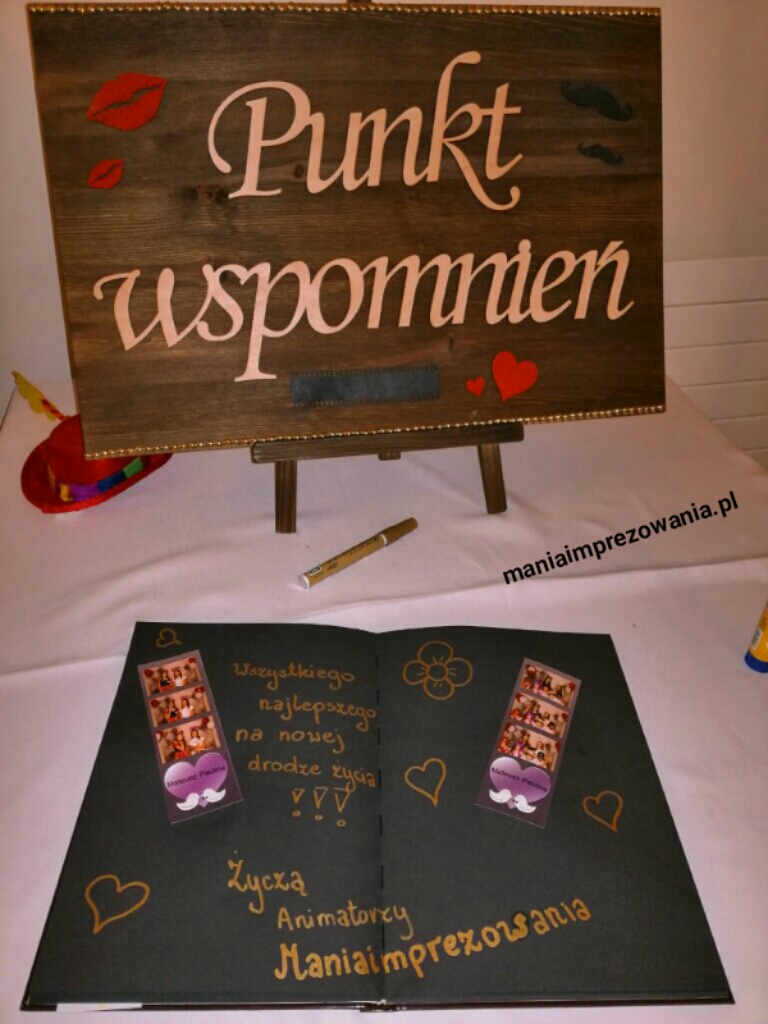 Punkt
wspomnień
maniaimprezowania.pl
Wszystkiego
najlepszego
na nowej
drodze życia
!!!
Mateusz Paulina
Mateusz Paulina
Życzą
Animatorzy
Maniaimprezowania